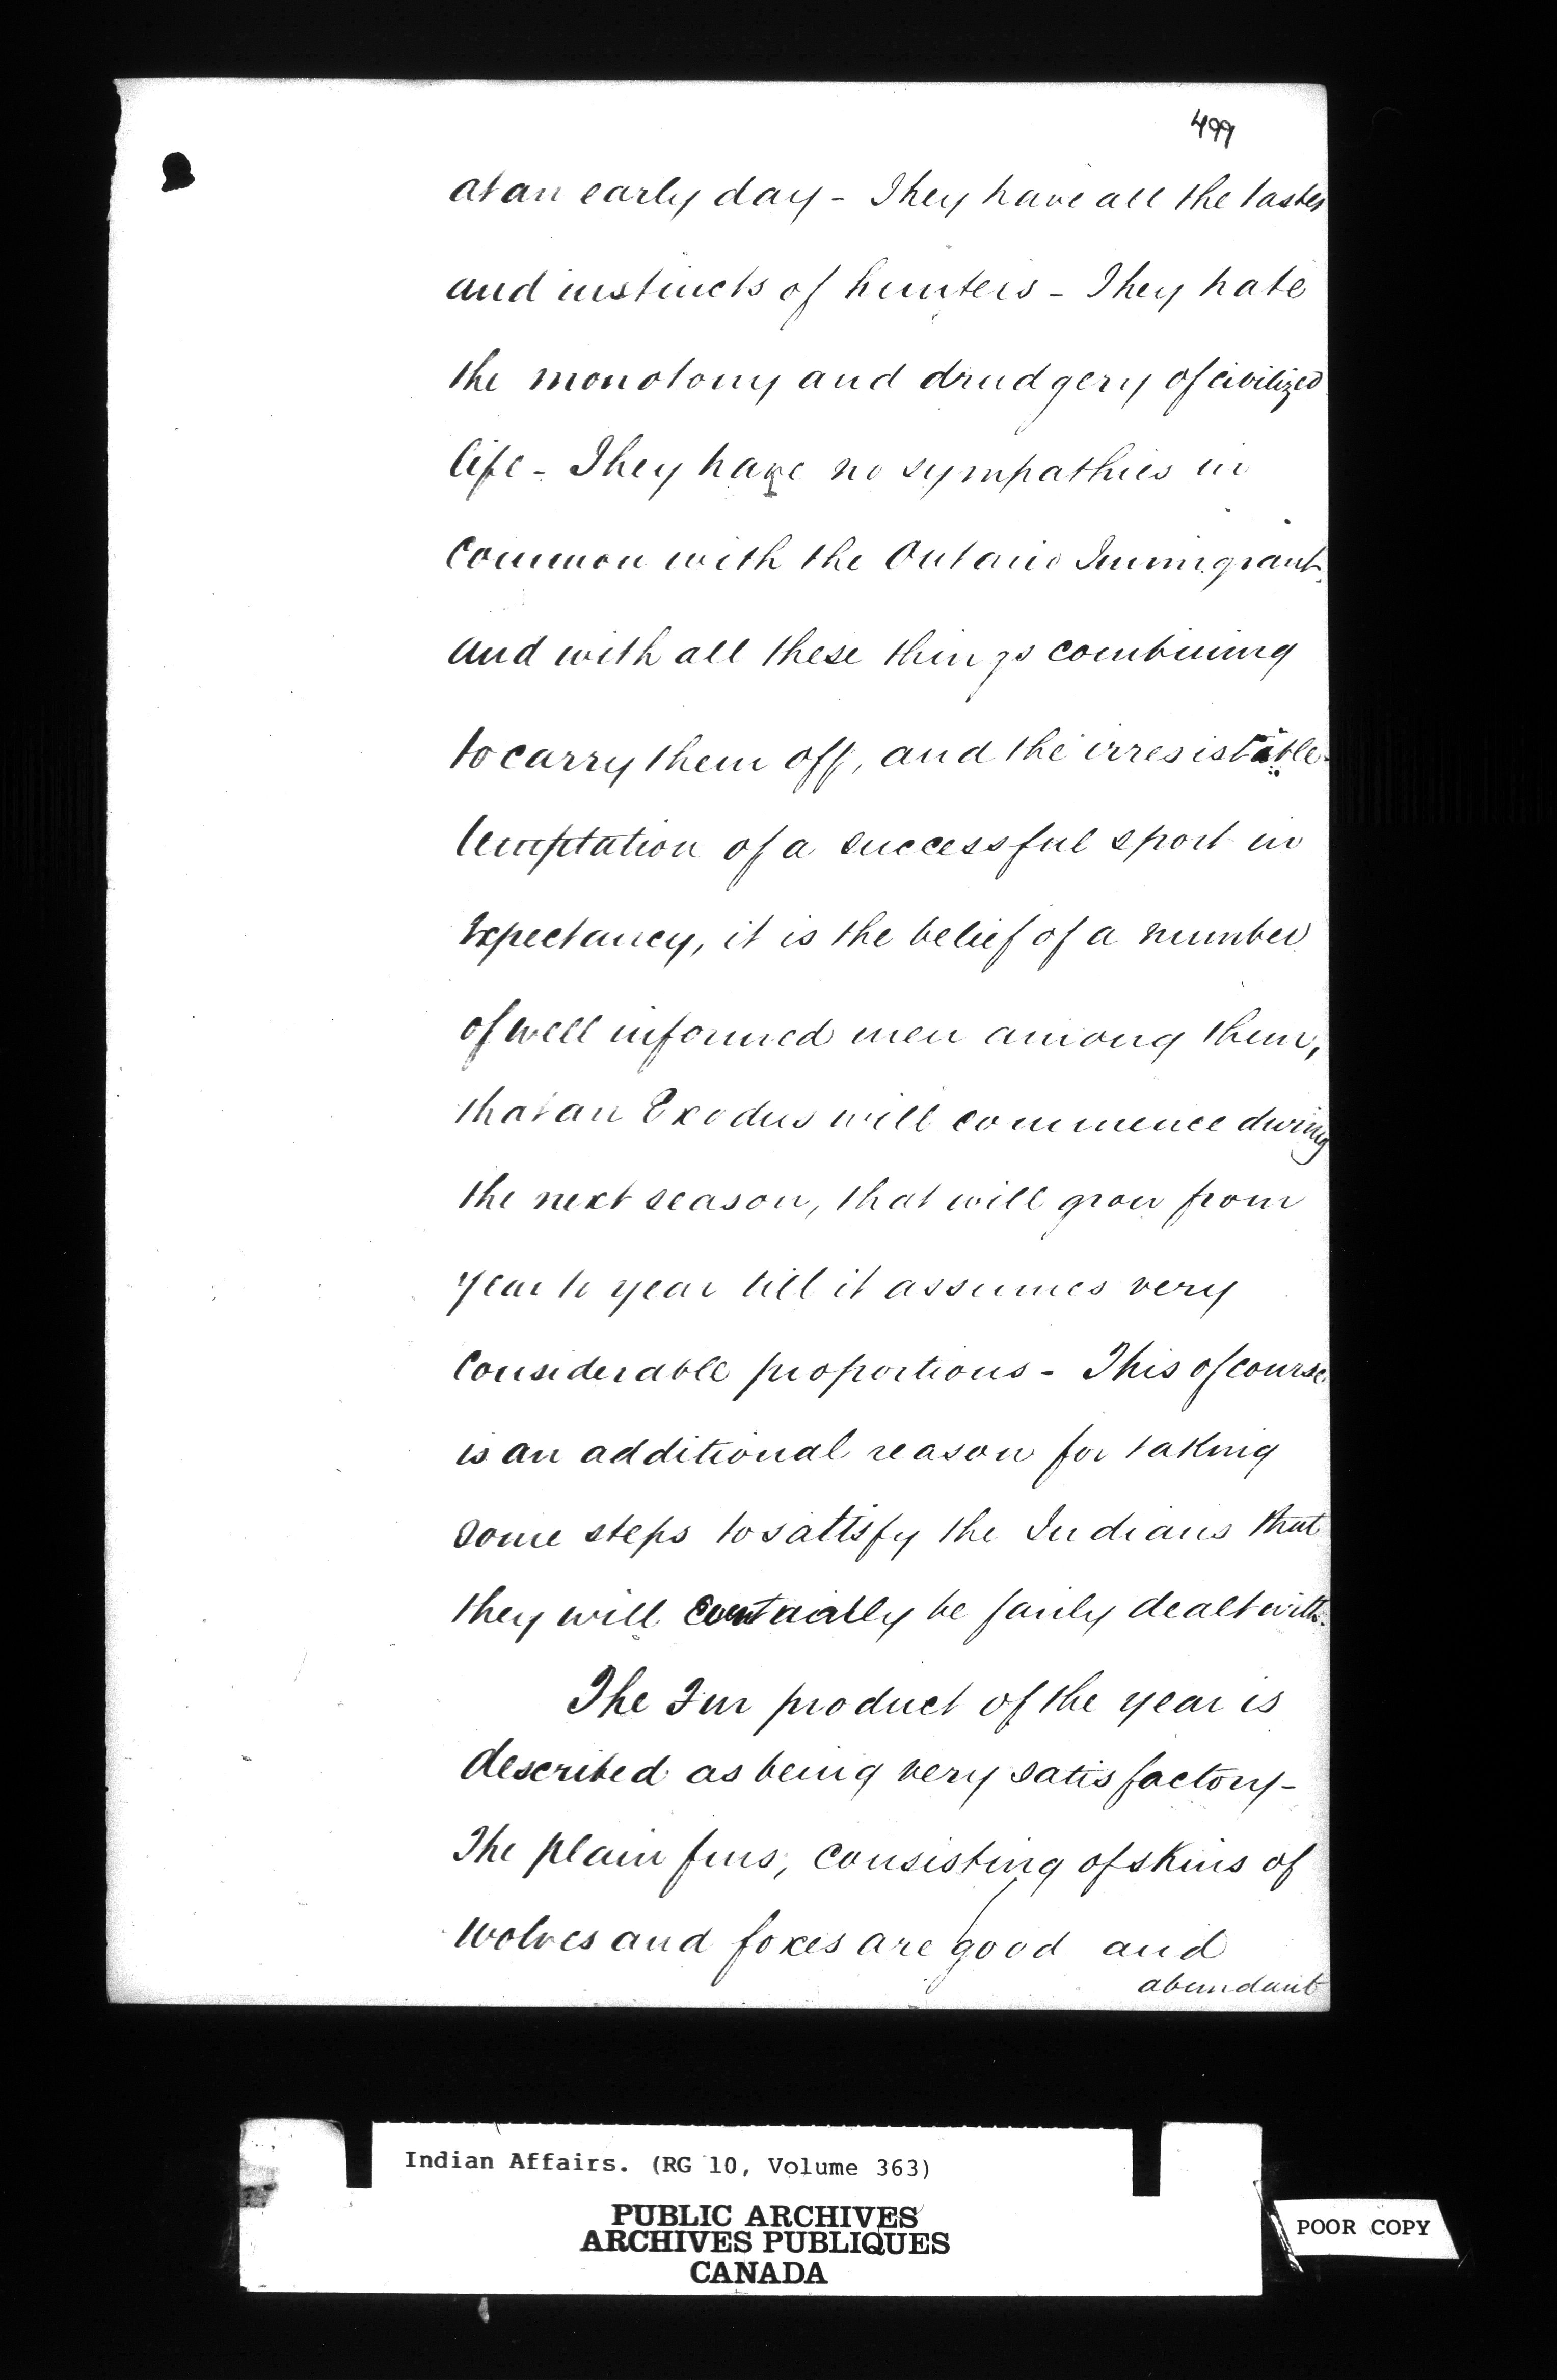 499
at an early day - They have all the tastes
and instincts of hunters - They hate
the monotony and drudgery of civilized
life - They have no sympathies in
common with the Ontario Immigrant,
and with all these things combining
to carry them off, and the irresistable
temptation of a successful sport in
expectancy, it is the belief of a number
of well informed men among them,
that an Exodus will commence during
the next season, that will grow from
year to year till it assumes very
considerable proportions - This of course
is an additional reason for taking
some steps to satisfy the Indians that
they will be fairly dealt with.
The Fur product of the year is
described as being very satisfactory -
The plain furs, consisting of skins of
wolves and foxes are good and
abundant
Indian Affairs. (RG 10, Volume 363)
PUBLIC ARCHIVES
ARCHIVES PUBLIQUES
CANADA
POOR COPY